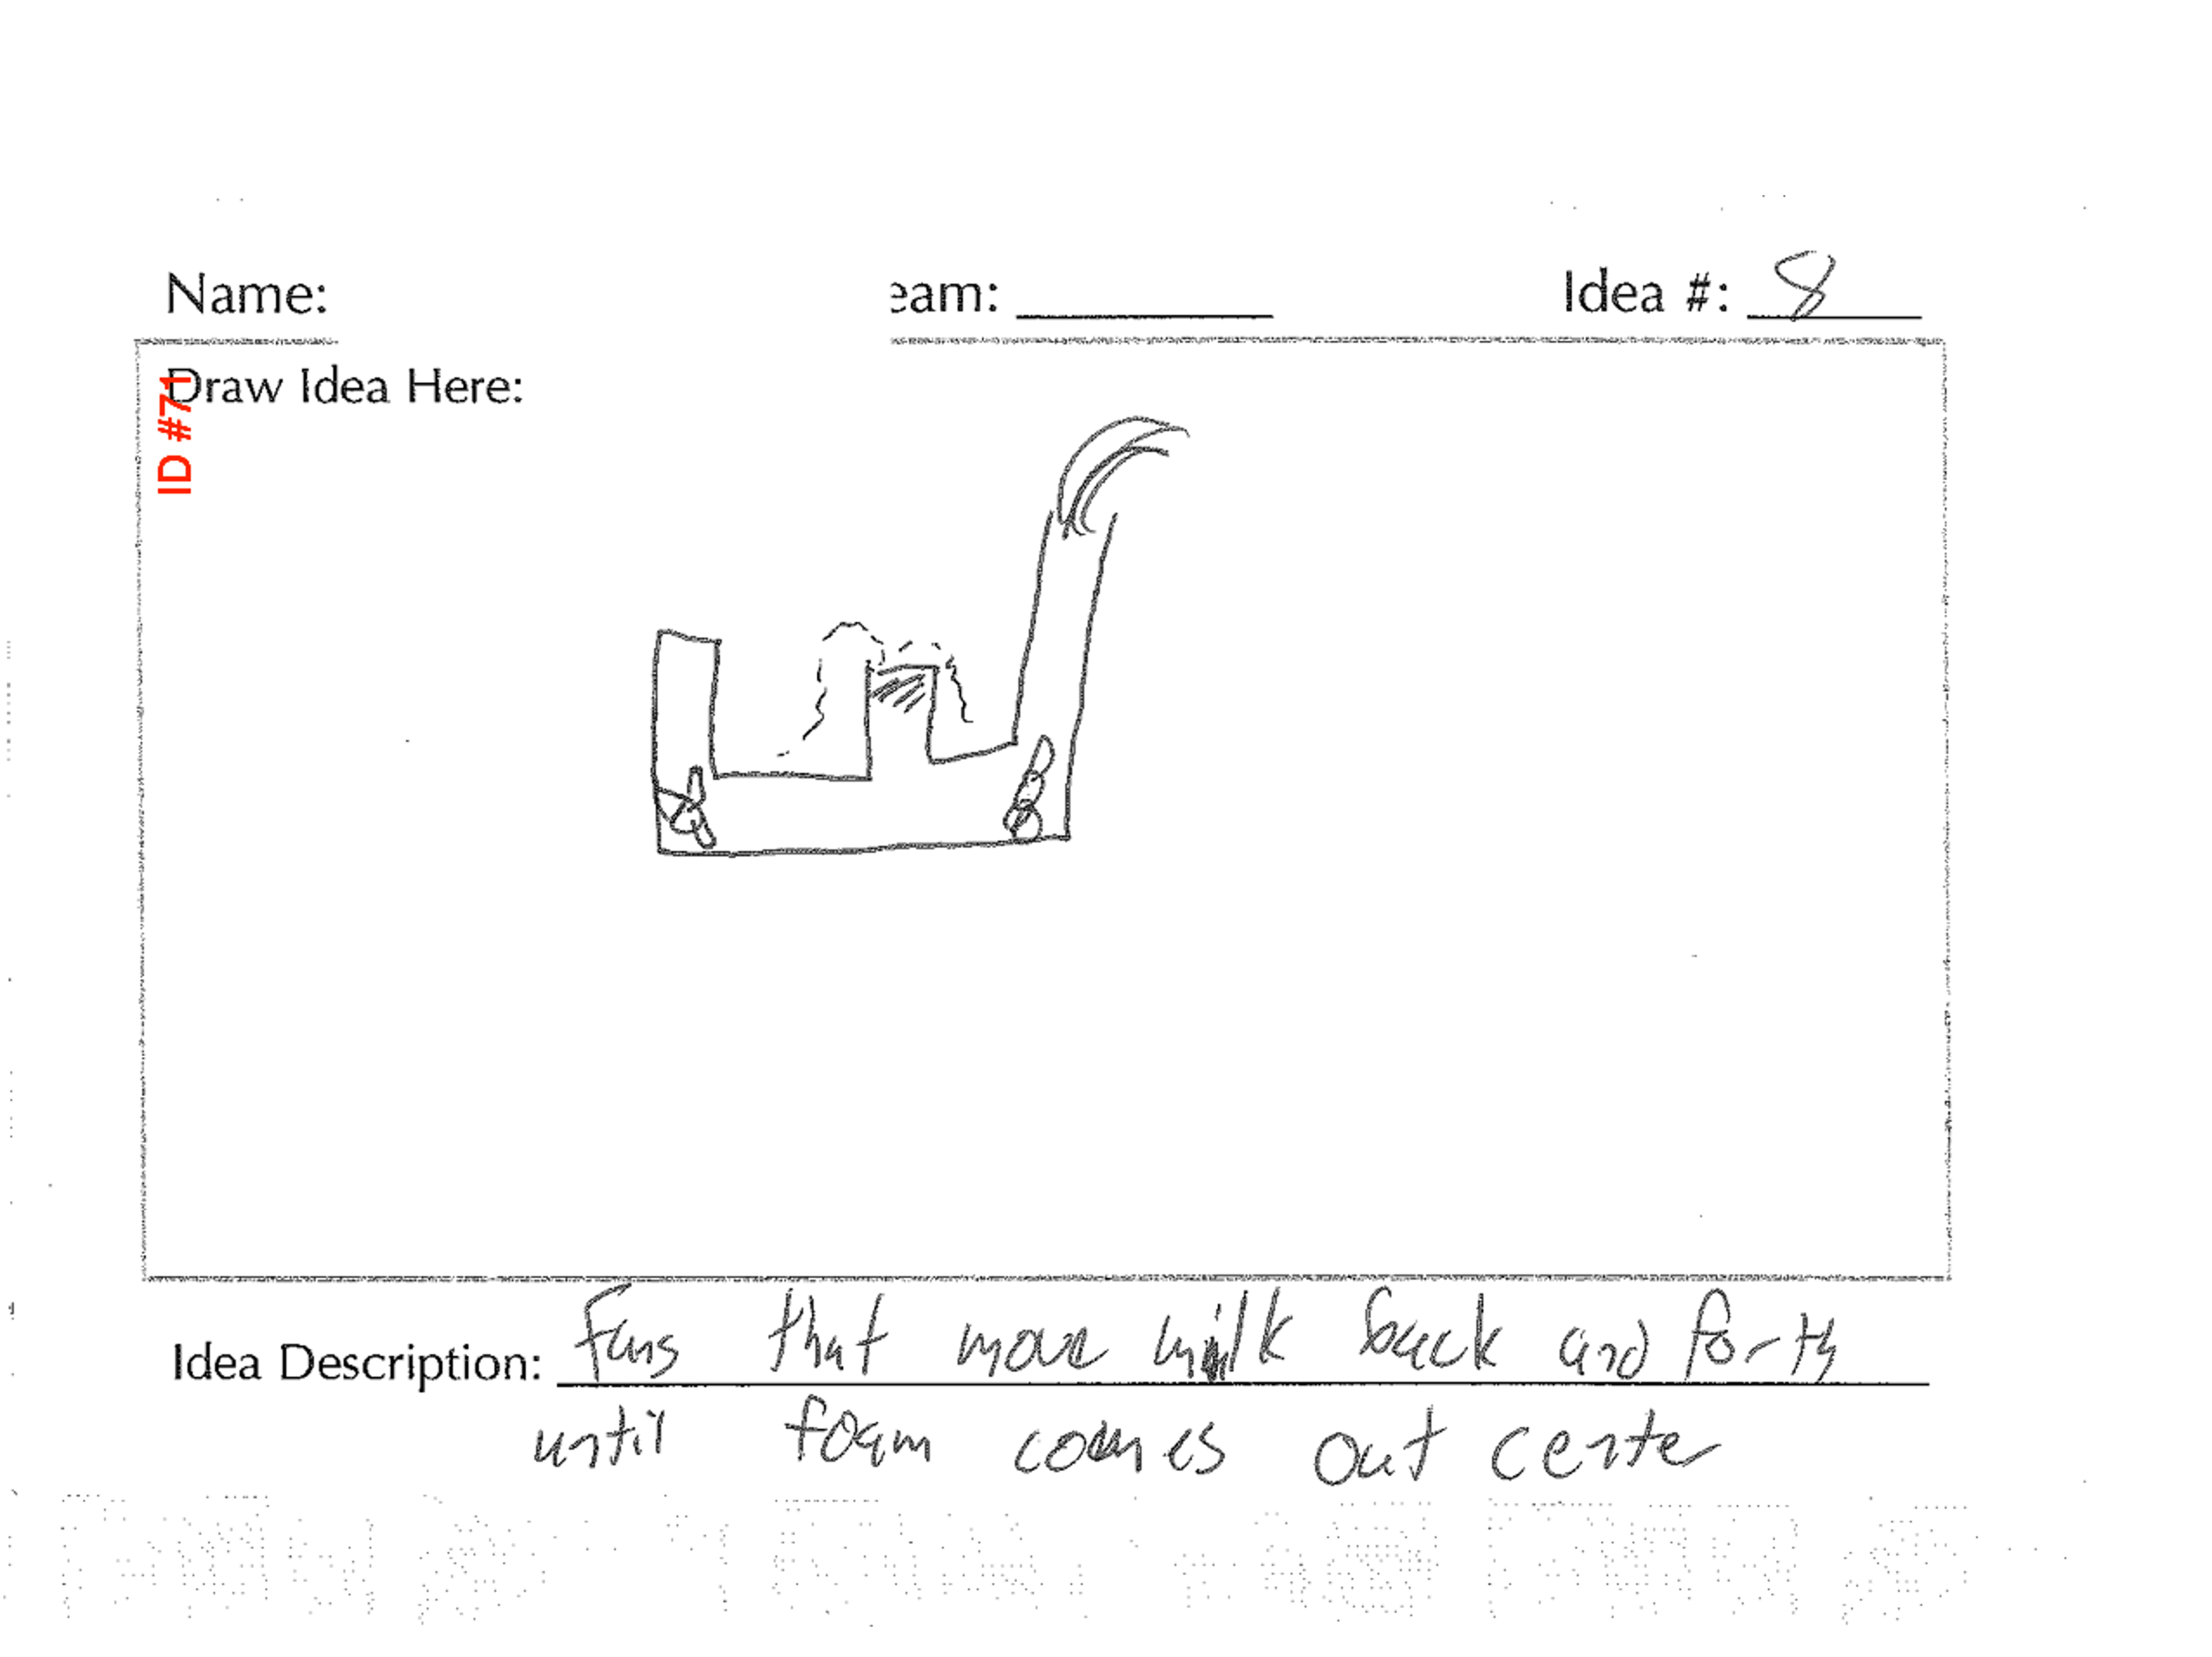 Name:
eam:
Idea #: 8
Draw Idea Here:
ID #71
Idea Description: Fans that move milk back and forth
until foam comes out center